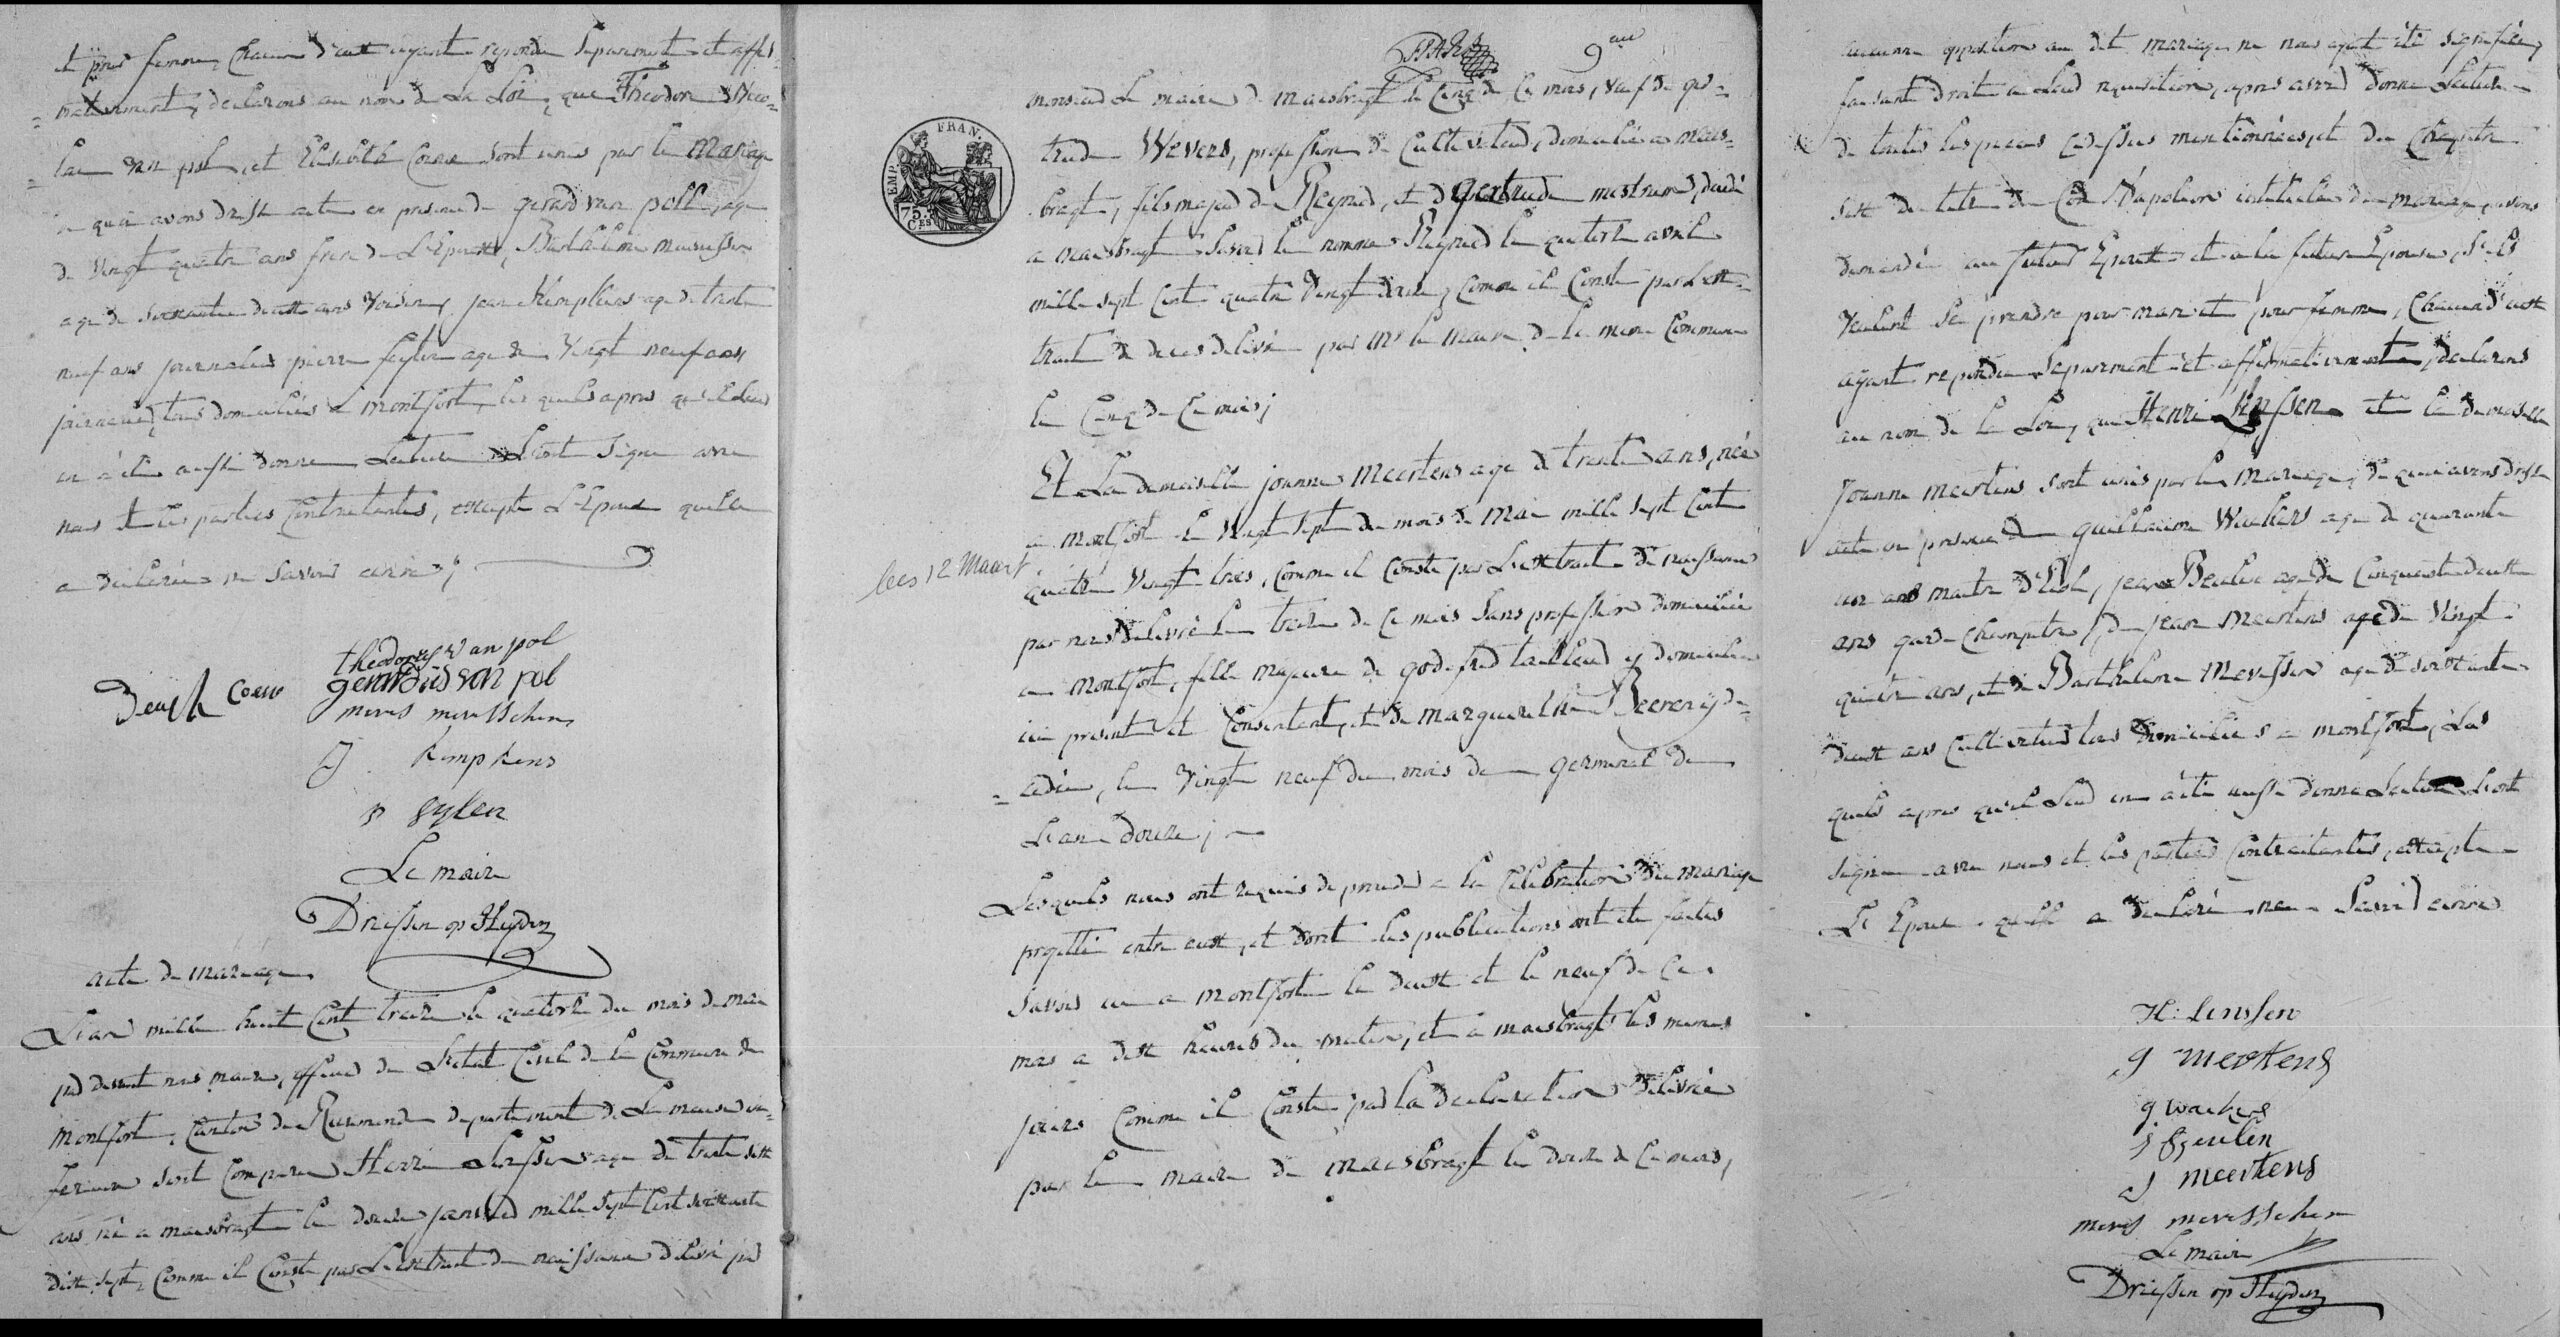 et pour femme, chacun d'eux ayant repondu separement et affir-
mativement, declarons au nom de La Loi, que Theodore Nico-
las van pol, et Elisabeth Coenen sont unis par le Mariage
de quoi avons dressé acte en presence de gerard van poll, age
de vingt quatre ans frere de L'Epoux, Barthelemi meuvissen
age de soixante deux ans voisin, jean Kempkens age de trente
neuf ans journalier pierre seylen age de vingt neuf ans
journalier, tous domiciliés à montfort, les quels apres qu'il leur
en a été aussi donné Lecture L'ont signé avec
nous et les parties Contractantes, excepté L'Epouse quelle
a declarée ne savoir ecrire;
theodorus van pol
Coenen gerardus van pol
mewis mevisschen
J kempkens
P Sylen
Le maire
Driessen op Heyden
acte de mariage
L'an mille huit Cent treize le quatorze du mois de mars
par devant nous maire, officier de L'etat Civil de la Commune de
montfort, Canton de Ruremonde departement de La meuse in-
ferieure sont Comparu Henri Lenssen age de trente six
ans né a maesbragt le douze janvier mille sept Cent soixante
dix sept, Comme il Conste par L'extrait de naissance delivré par
9eme
monsieur Le maire de maesbragt le Cinq de Ce mois, veuf de ger-
trude Wevers, profession de Cultivateur, domicilié a maes-
bragt, fils majeur de Regnier, et de gertrude mestrum, decedé
a maesbragt savoir le nommé Regnier le quatorze avril
EMP. FRAN.
75 CES
mille sept Cent quatre vingt treize, Comme il Conste par L'ex-
trait de deces delivré par Mr le maire de la meme Commune
le Cinq de Ce mois;
Et La demoiselle joanne Meertens age de trente ans, née
a montfort le vingt sept du mois de Mai mille sept Cent
lees 12 Maart
quatre vingt trois, Comme il Conste par L'extrait de naissance
par nous delivré le treize de Ce mois sans profession domiciliée
a montfort, fille majeure de godefried tailleur y domicilié
ici present et Consentent, et de marguerithe Beerens y de-
cedée, le vingt neuf du mois de germinal de
L'an douze;
Lesquels nous ont requis de proceder a la Celebration du mariage
projetté entre eux, et dont les publications ont eté faites
savoir a montfort le deux et le neuf de Ce
mois a dix heures du matin, et a maesbragt les memes
jours Comme il Conste par la declaration delivrée
par le maire de maesbragt le douze de Ce mois,
aucune opposition au dit mariage ne nous ayant été signifiée,
faisant droit a Leur requisition, apres avoir donné Lecture
de toutes les pieces cidessus mentionnées, et du chapitre
sixt du titre du Code Napoleon intitulée du mariage, avons
demandé au futur Epoux et a la future Epouse, s'ils
veulent se prendre pour mari et pour femme, Chacun d'eux
ayant repondu separement et affirmativement, declarons
au nom de la Loi, que Henri Lenssen et la demoiselle
Joanne meertens sont unis par le Mariage, de quoi avons dressé
acte en presence de guillaume Wackers age de quarante
un ans maitre d'Ecole, jean Beulen age de Cinquante deux
ans garde Champetre, de jean Meertens age de vingt
quatre ans, et de Barthelemi Mevissen age de soixante
deux ans Cultivateur tous domiciliés a montfort, Les
quels apres qu'il Leur en a été aussi donné Lecture L'ont
signé avec nous et les parties Contractantes, excepté
L'Epouse quelle a declaré ne Savoir ecrire
H: Lenssen
g mertens
g wackers
J Beulen
J meertens
mewis mevisschen
Le maire
Driessen op Heyden